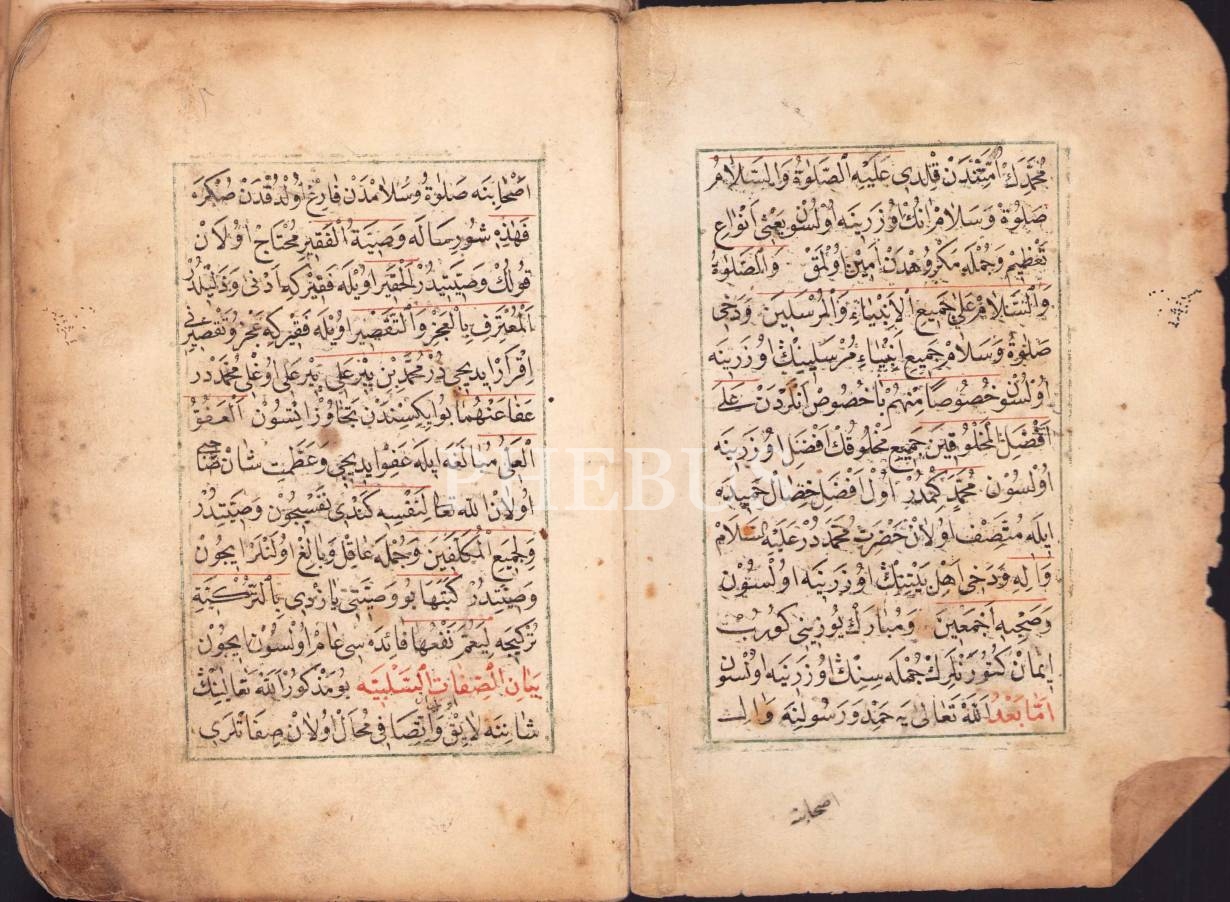 مُحَمَّدَكْ اُمَّتِنْدَنْ قِلْدِى عَلَيْهِ الصَّلٰوةُ وَالسَّلَامُ
صَلٰوةُ وَسَلَامْ انُكْ اُوزَرِينَه اُولْسُونْ يَعْنِى اَنْوَاعِ
تَعْظِيمْ وَجُمْلَه مَكْرُوهْدَنْ اَمِينْ اُولْمَقْ وَالصَّلٰوةُ
وَالسَّلَامُ عَلٰى جَمِيعِ الْاَنْبِيَاءِ وَالْمُرْسَلِينَ وَدَخِى
صَلٰوةُ وَسَلَامْ جَمِيعِ اَنْبِيَاءِ مُرْسَلِينِڭْ اُوزَرِينَه
اُولْسُونْ خُصُوصًا مِنْهُمْ بَاخُصُوصْ اَنْلَرْدَنْ عَلٰى
اَفْضَلِ الْمَخْلُوقِينَ جَمِيعِ مَخْلُوقُكْ اَفْضَلِ اُوزَرِينَه
اُولْسُونْ مُحَمَّدٍ كِمْدُرْ اُولْ اَفْضَلْ خِصَالِ حَمِيدَه
اِيلَه مُتَّصِفْ اُولَانْ حَضْرَتِ مُحَمَّدْدُرْ عَلَيْهِ السَّلَامْ
وَاٰلِهِ وَدَخِى اَهْلِ بَيْتِنِكْ اُوزَرِينَه اُولْسُونْ
وَصَحْبِهِ اَجْمَعِينَ وَمُبَارَكْ يُوزِينِى كُورُبْ
اِيمَانْ كَتُورَنْلَرِكْ جُمْلَه سِنِڭْ اُوزَرِينَه اُولْسُونْ
اَمَّا بَعْدُ اَللّٰهُ تَعَالٰى يَه حَمْدْ وَرَسُولِنَه وَاٰلِ
اصحابنه
اَصْحَابِنَه صَلٰوةُ وَسَلَامْدَنْ فَارِغْ اُولْدُقْدَنْ صُكْرَه
فَهٰذِهِ شُورِسَالَه وَصِيَّةُ الْفَقِيرِ مُحْتَاجْ اُولَانْ
قُولُكْ وَصِيَّتِيدُرْ الْحَقِيرِ اُويْلَه فَقِيرْكِه اَدْنٰى وَذَلِيلْدُرْ
الْمُعْتَرِفِ بِالْعَجْزِ وَالتَّقْصِيرِ اُويْلَه فَقِيرْكِه عَجْزُ وَتَقْصِيرِنِى
اِقْرَارْ اِيدِيجِى دُرْ مُحَمَّدِ بْنِ پِيرْ عَلِى پِيرْ عَلِى اُوغْلِى مُحَمَّدْدُرْ
عَفَا عَنْهُمَا بُو اِيكِسِنْدَنْ تَجَاوُزْ اِيتْسُونْ الْعَفُوُّ
الْعَلِىُّ مُبَالَغَه اِيلَه عَفْوْ اِيدِيجِى وَعَظَمَتِ شَانْ صَاحِبِى
اُولَانْ اللّٰه تَعَالٰى لِنَفْسِهِ كَنْدِى نَفْسِيچُونْ وَصِيَّتِدُرْ
وَلِجَمِيعِ الْمُكَلَّفِينَ وَجُمْلَه عَاقِلْ وَبَالِغْ اُولَنْلَرْ اِيچُونْ
وَصِيَّتِدُرْ كَتَبْتُهَا بُو وَصِيَّتِى يَازْدِى بِالتُّرْكِيَّةِ
تُرْكِيجَه لِيَعُمَّ نَفْعُهَا فَائِدَه سِى عَامْ اُولْسُونْ اِيچُونْ
بَيَانِ الصِّفَاتِ السَّلْبِيَّه بُو مَذْكُورْ اَللّٰهُ تَعَالٰينِڭْ
شَانِنَه لَايِقْ وَاتِّصَافِى مُحَالْ اُولَانْ صِفَاتْلَرِى
PHEBUS